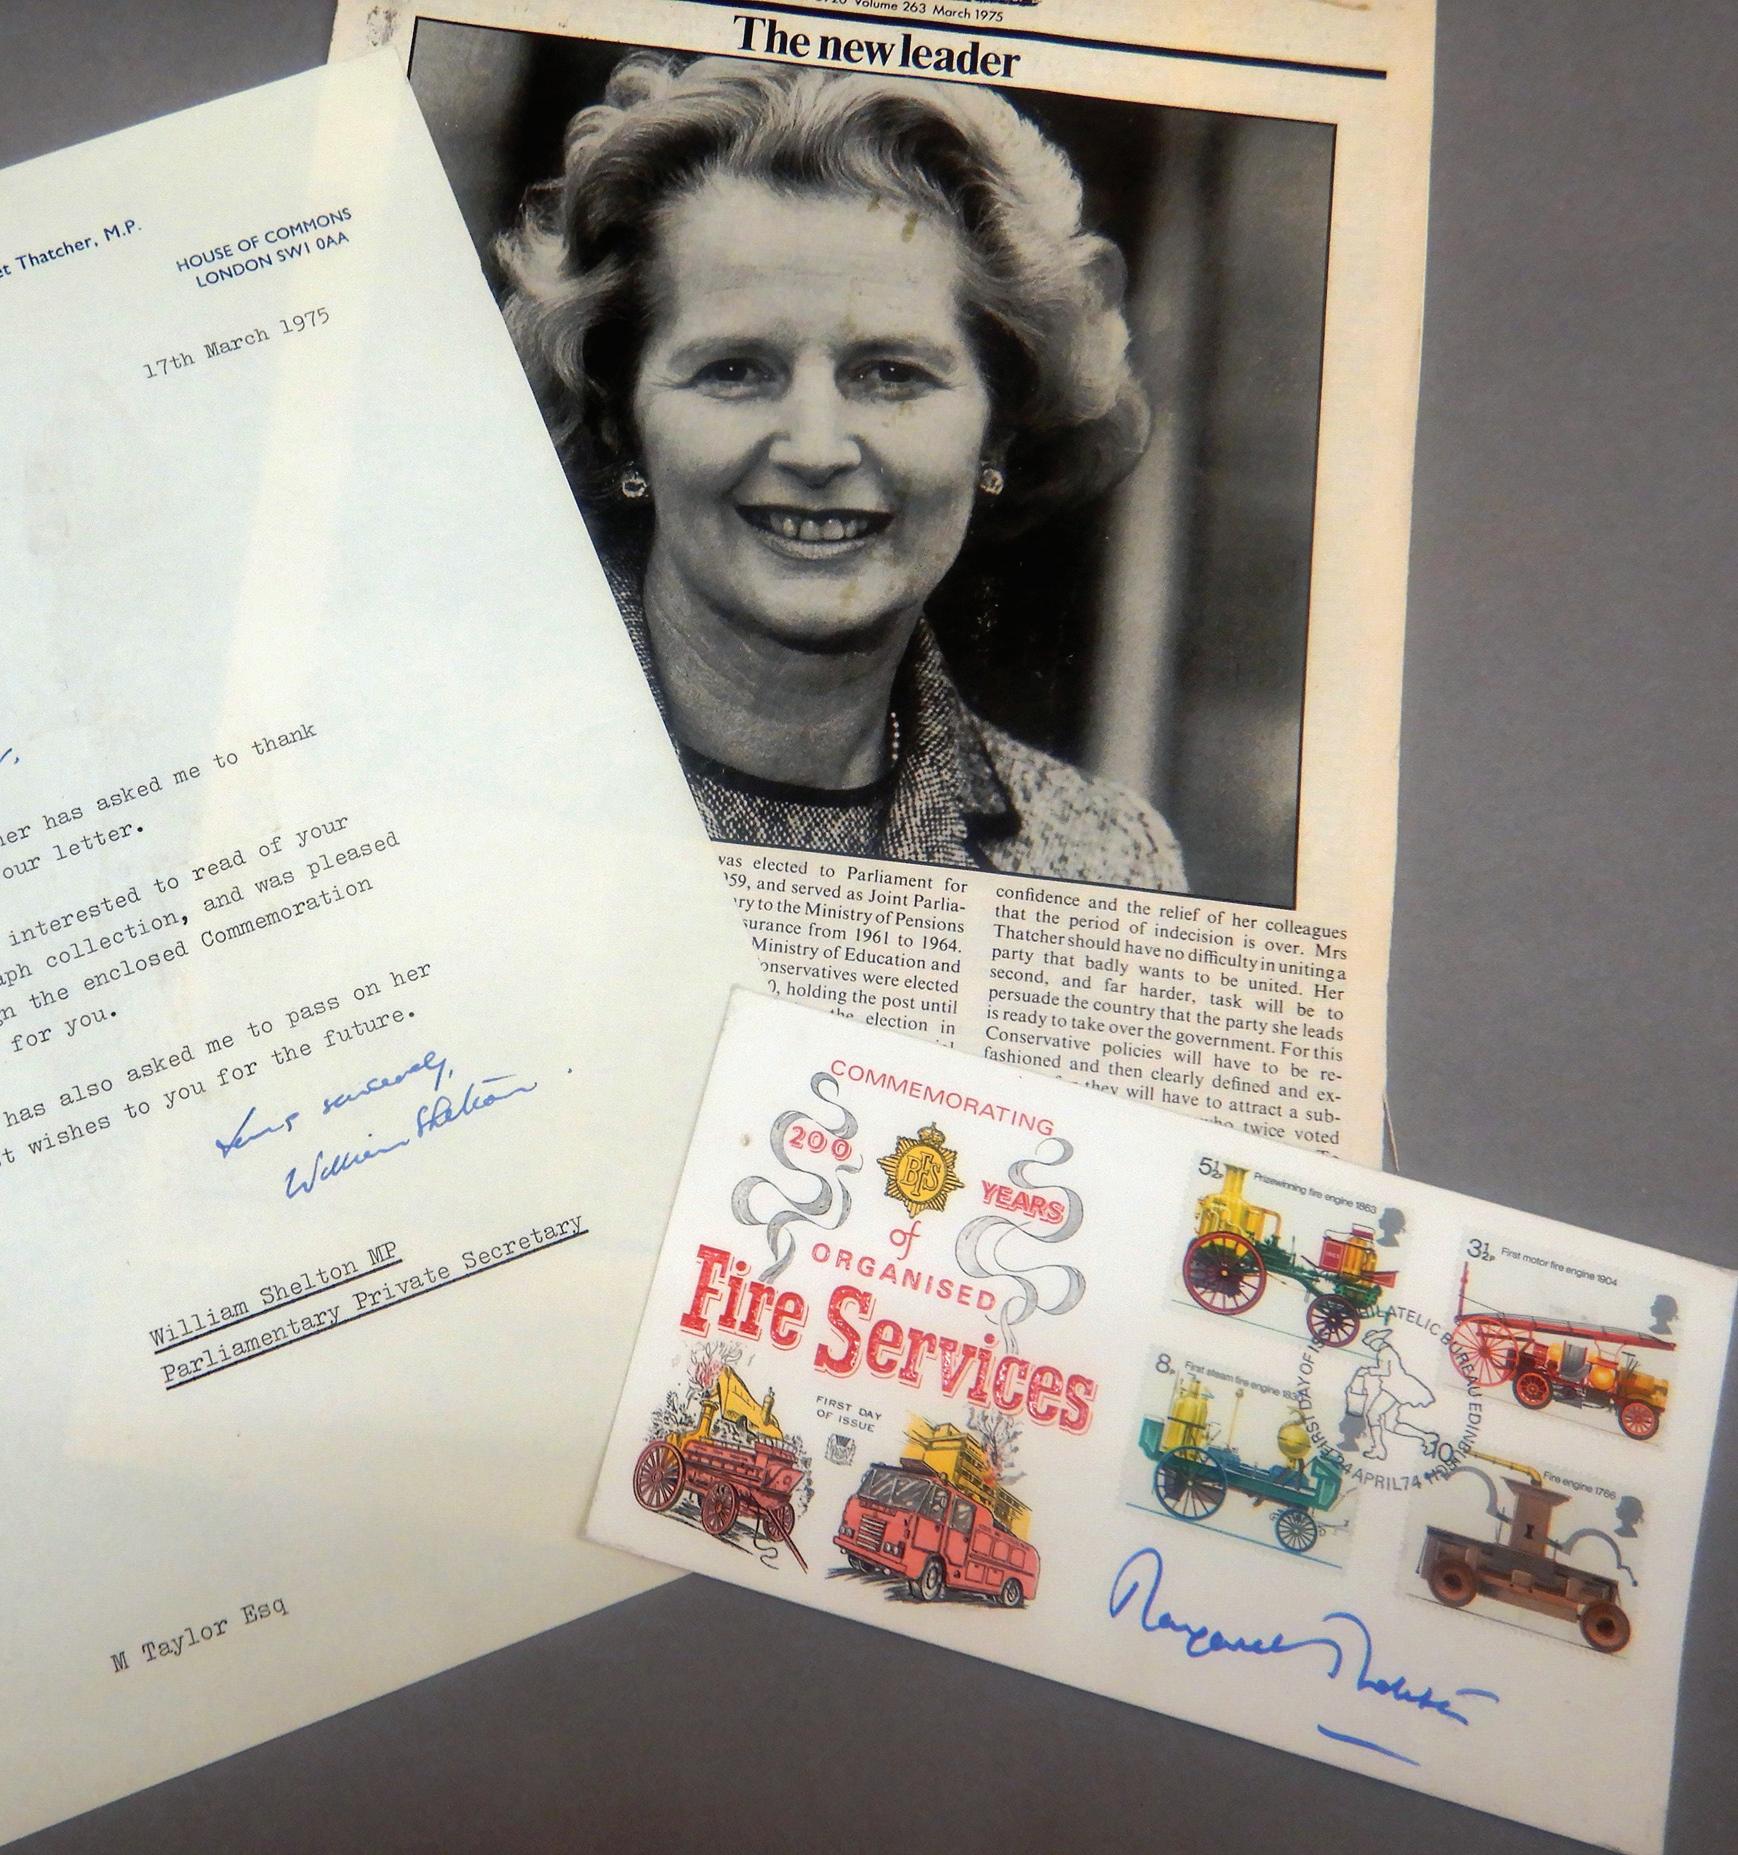 Volume 263 March 1975
The new leader
was elected to Parliament for
59, and served as Joint Parlia-
ry to the Ministry of Pensions
surance from 1961 to 1964.
Ministry of Education and
onservatives were elected
0, holding the post until
the election in
confidence and the relief of her colleagues
that the period of indecision is over. Mrs
Thatcher should have no difficulty in uniting a
party that badly wants to be united. Her
second, and far harder, task will be to
persuade the country that the party she leads
is ready to take over the government. For this
Conservative policies will have to be re-
fashioned and then clearly defined and ex-
they will have to attract a sub-
who twice voted
To
et Thatcher, M.P.
HOUSE OF COMMONS
LONDON SW1 0AA
17th March 1975
her has asked me to thank
our letter.
interested to read of your
aph collection, and was pleased
gn the enclosed Commemoration
for you.
has also asked me to pass on her
t wishes to you for the future.
Yours sincerely,
William Shelton.
William Shelton MP
Parliamentary Private Secretary
M Taylor Esq
COMMEMORATING
200 YEARS
BFS
of
ORGANISED
Fire Services
FIRST DAY
OF ISSUE
5½P Prizewinning fire engine 1863
3½P First motor fire engine 1904
8P First steam fire engine 1830
10P Fire engine 1766
PHILATELIC BUREAU EDINBURGH
FIRST DAY OF ISSUE
24 APRIL 74
Margaret Thatcher